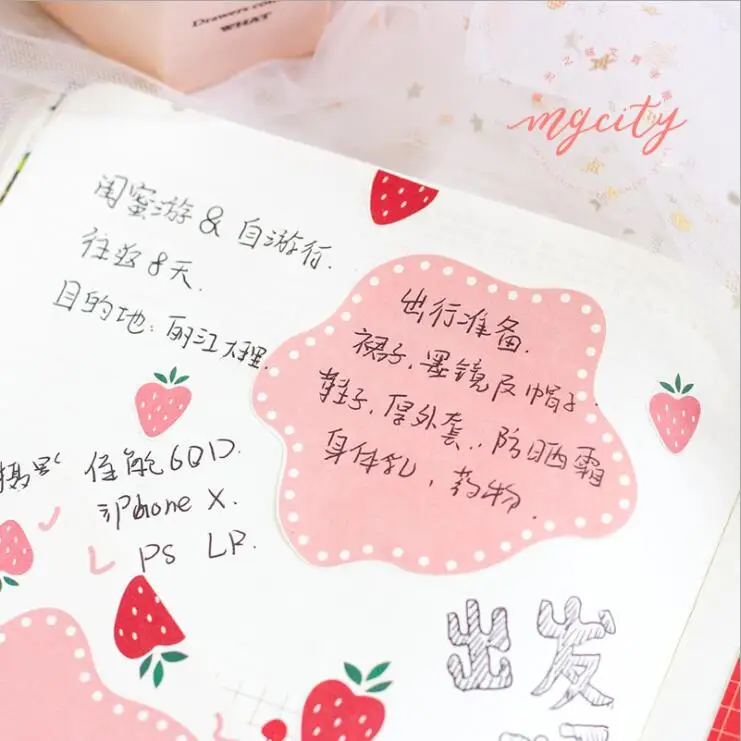 Drawers
WHAT
mgcity
闺蜜游 & 自游行.
往返 8天.
目的地: 丽江 大理.
出行准备.
裙子, 墨镜及帽子.
鞋子, 厚外套, 防晒霜
身体乳, 药物.
佳能 6QD.
iPhone X.
PS LR.
出发